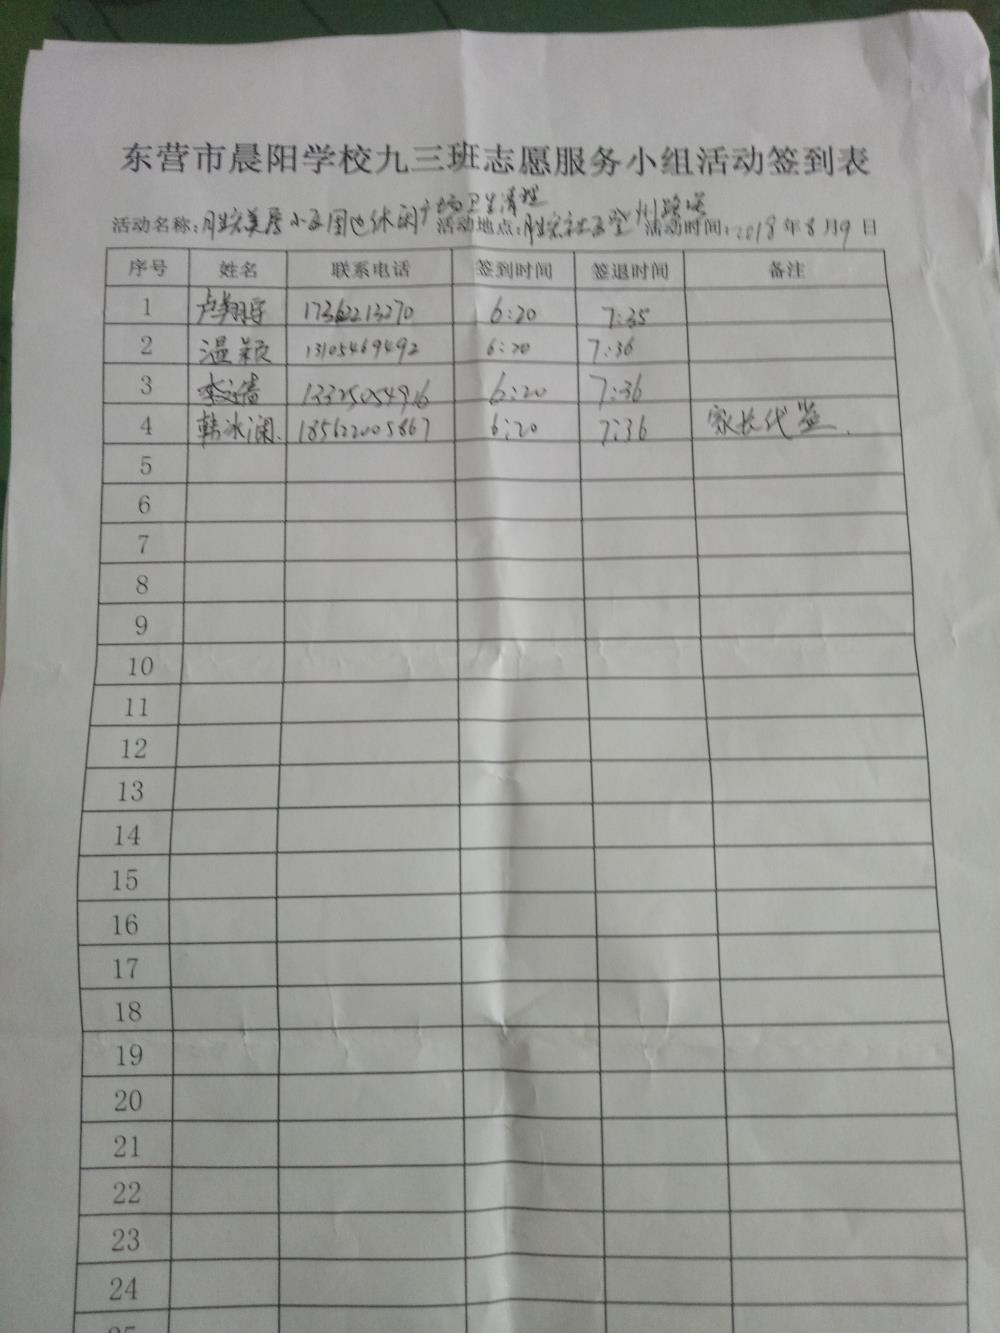 东营市晨阳学校九三班志愿服务小组活动签到表
活动名称:胜宏美居小区周边休闲广场卫生清理 活动地点:胜宏社区 州路 活动时间:2018年8月9日
序号 姓名 联系电话 签到时间 签退时间 备注
1 卢翔宇 17362213270 6:20 7:35
2 温颖 13105469492 6:20 7:36
3 李文倩 13325054916 6:20 7:36
4 韩冰澜. 185622005867 6:20 7:36 家长代签.
5
6
7
8
9
10
11
12
13
14
15
16
17
18
19
20
21
22
23
24
25